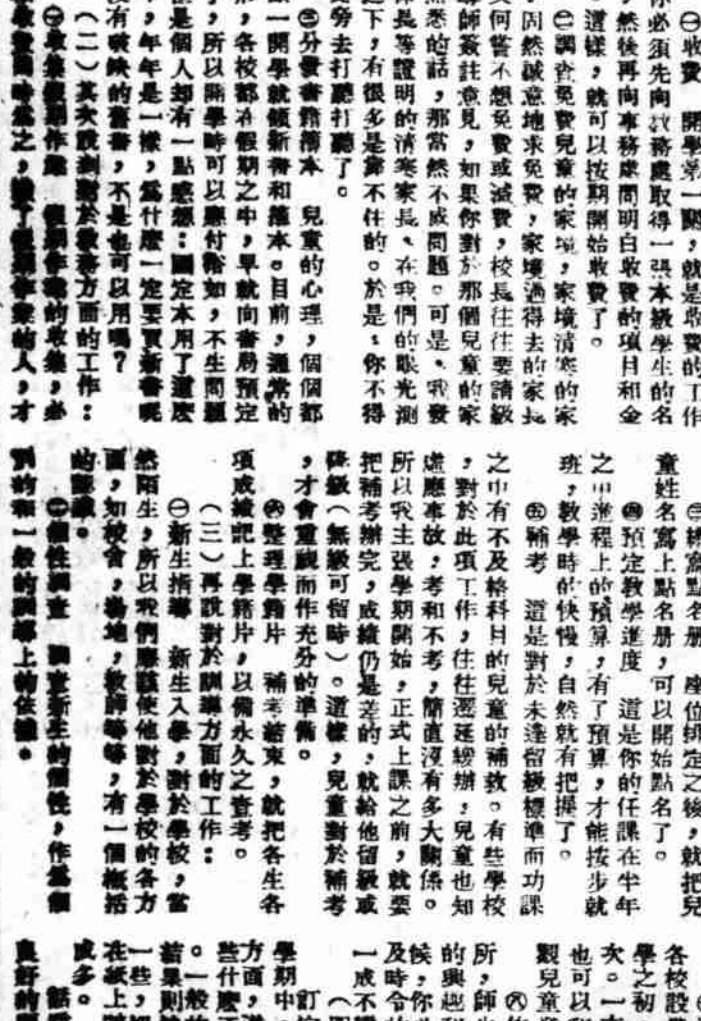 ㊀收費　開學第一關，就是收費的工作
你必須先向教務處取得一張本級學生的名
，然後再向事務處問明白收費的項目和金
這樣，就可以按期開始收費了。
㊁調查免費兒童的家境，家境清寒的家
固然誠意地求免費，家境過得去的家長
又何嘗不想免費或減費，校長往往要請級
導師簽註意見，如果你對於那個兒童的家
熟悉的話，那當然不成問題。可是，
長等證明的清寒家長、在我們的眼光測
之下，有很多是靠不住的。於是，你不得
旁去打聽打聽了。
㊂分發書籍簿本　兒童的心理，個個都
一開學就領新書和簿本。目前，通常的
，各校都在假期之中，早就向書局預定
，所以開學時可以應付裕如，不生問題
是個人却有一點感想：國定本用了這麽
，年年是一樣，爲什麽一定要買新書呢
沒有破缺的舊書，不是也可以用嗎？
（二）其次說到對於教務方面的工作：
㊀收集假期作業　假期作業的收集，必
之，了假期作業的人，才
㊂　寫點名册　座位排定之後，就把兒
童姓名寫上點名册，可以開始點名了。
㊃預定教學進度　這是你的任課在半年
之中進程上的預算，有了預算，才能按步就
班，教學時的快慢，自然就有把握了。
㊄補考　這是對於未達留級標準而功課
之中有不及格科目的兒童的補救。有些學校
，對於此項工作，往往遷延緩辦，兒童也知
虛應事故，考和不考，簡直沒有多大關係。
所以我主張學期開始，正式上課之前，就要
把補考辦完，成績仍是差的，就給他留級或
降級（無級可留時）。這樣，兒童對於補考
，才會重視而作充分的準備。
㊅整理學籍片　補考結束，就把各生各
項成績記上學籍片，以備永久之查考。
（三）再說對於訓導方面的工作：
㊀新生指導　新生入學，對於學校，當
然陌生，所以我們應該使他對於學校的各方
面，如校舍，場地，教師等等，有一個概括
的認識。
㊁個性調查　調查新生的個性，作爲個
別的和一般的訓導上的依據。
各校設
學之初
次。一
也可以
觀兒童
㊇
所，師
的興趣
候，你
及時令的
一成不
訂
學期中
方面，
些什麽
。一般的
結果則
一些，
在紙上
成多。
話
良好的